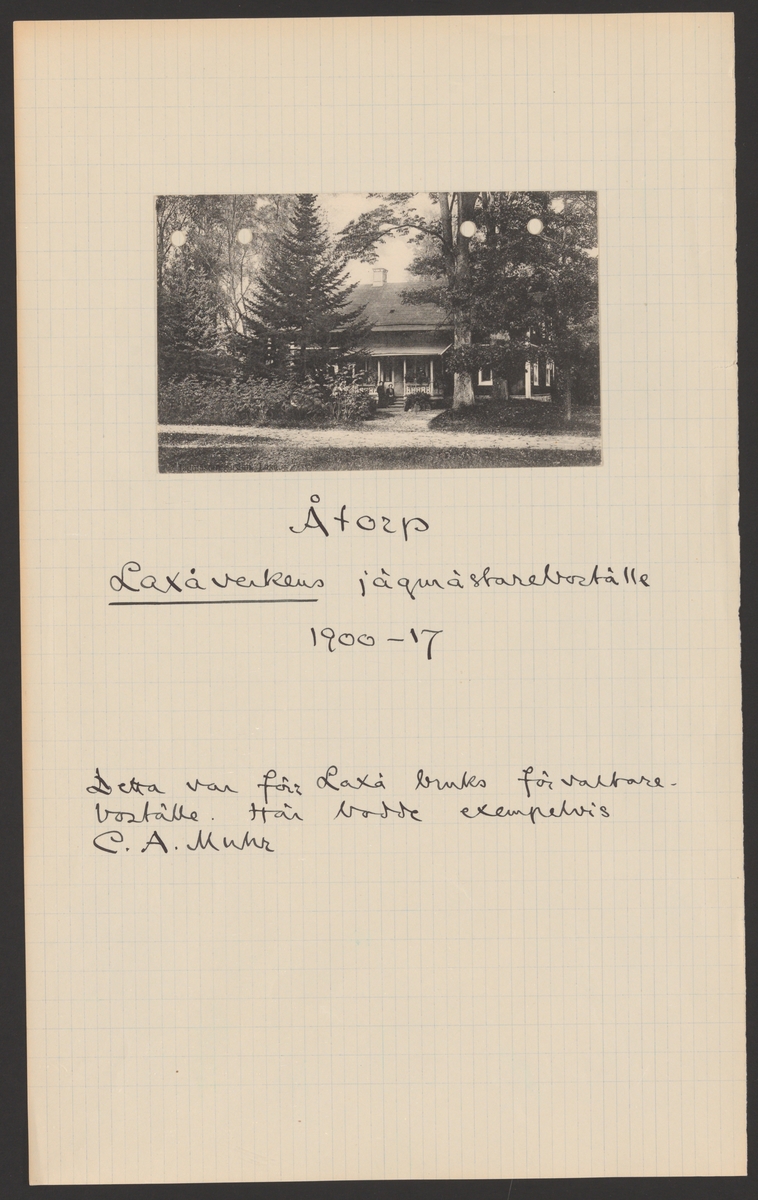 Åtorp
Laxåverkens jägmästareboställe
1900-17
Detta var förr Laxå bruks förvaltare-
boställe. Här bodde exempelvis
C. A. Muhr